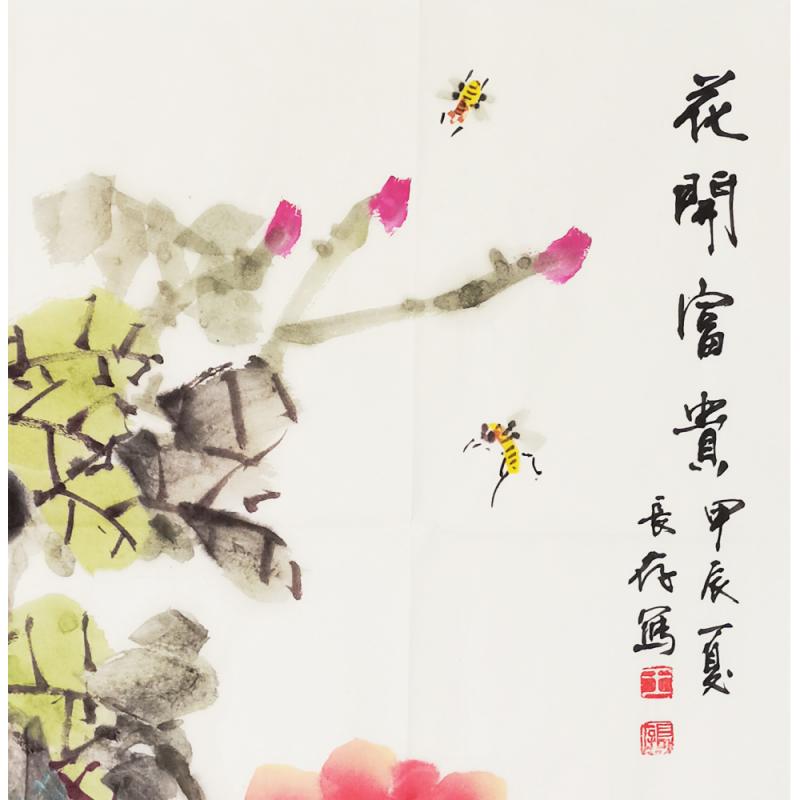 花開富貴甲辰夏
長存寫